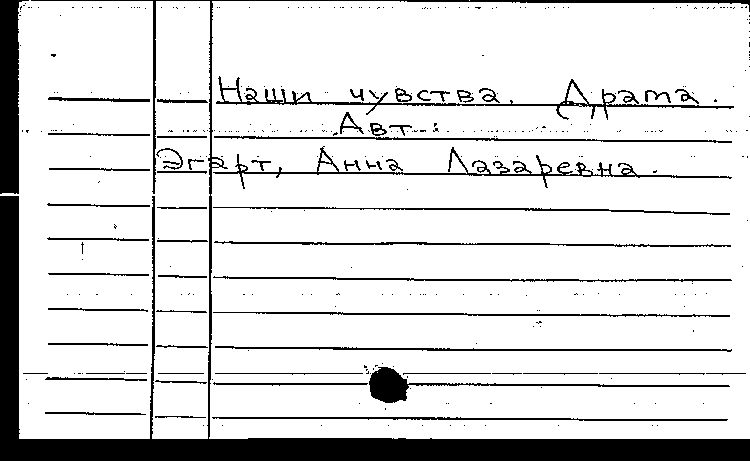 Наши чувства. Драма.
Авт.:
Эгарт, Анна Лазаревна.